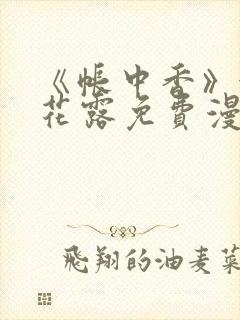 《帐中香》
花露免费漫
飛翔的油麦菜